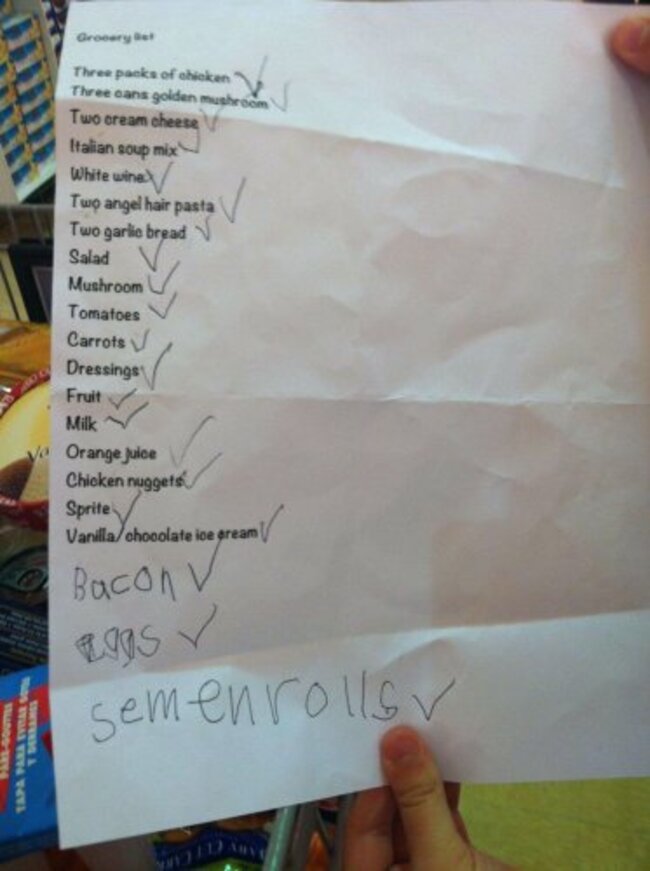 Grocery list
Three packs of chicken
Three cans golden mushroom
Two cream cheese
Italian soup mix
White wine
Two angel hair pasta
Two garlic bread
Salad
Mushroom
Tomatoes
Carrots
Dressings
Fruit
Milk
Orange juice
Chicken nuggets
Sprite
Vanilla/chocolate ice cream
Bacon
eggs
semenrolls
PARE-GOUTTES
TAPA PARA EVITAR GOTEO
Y DERRAMES
BABY CUT CARROTS